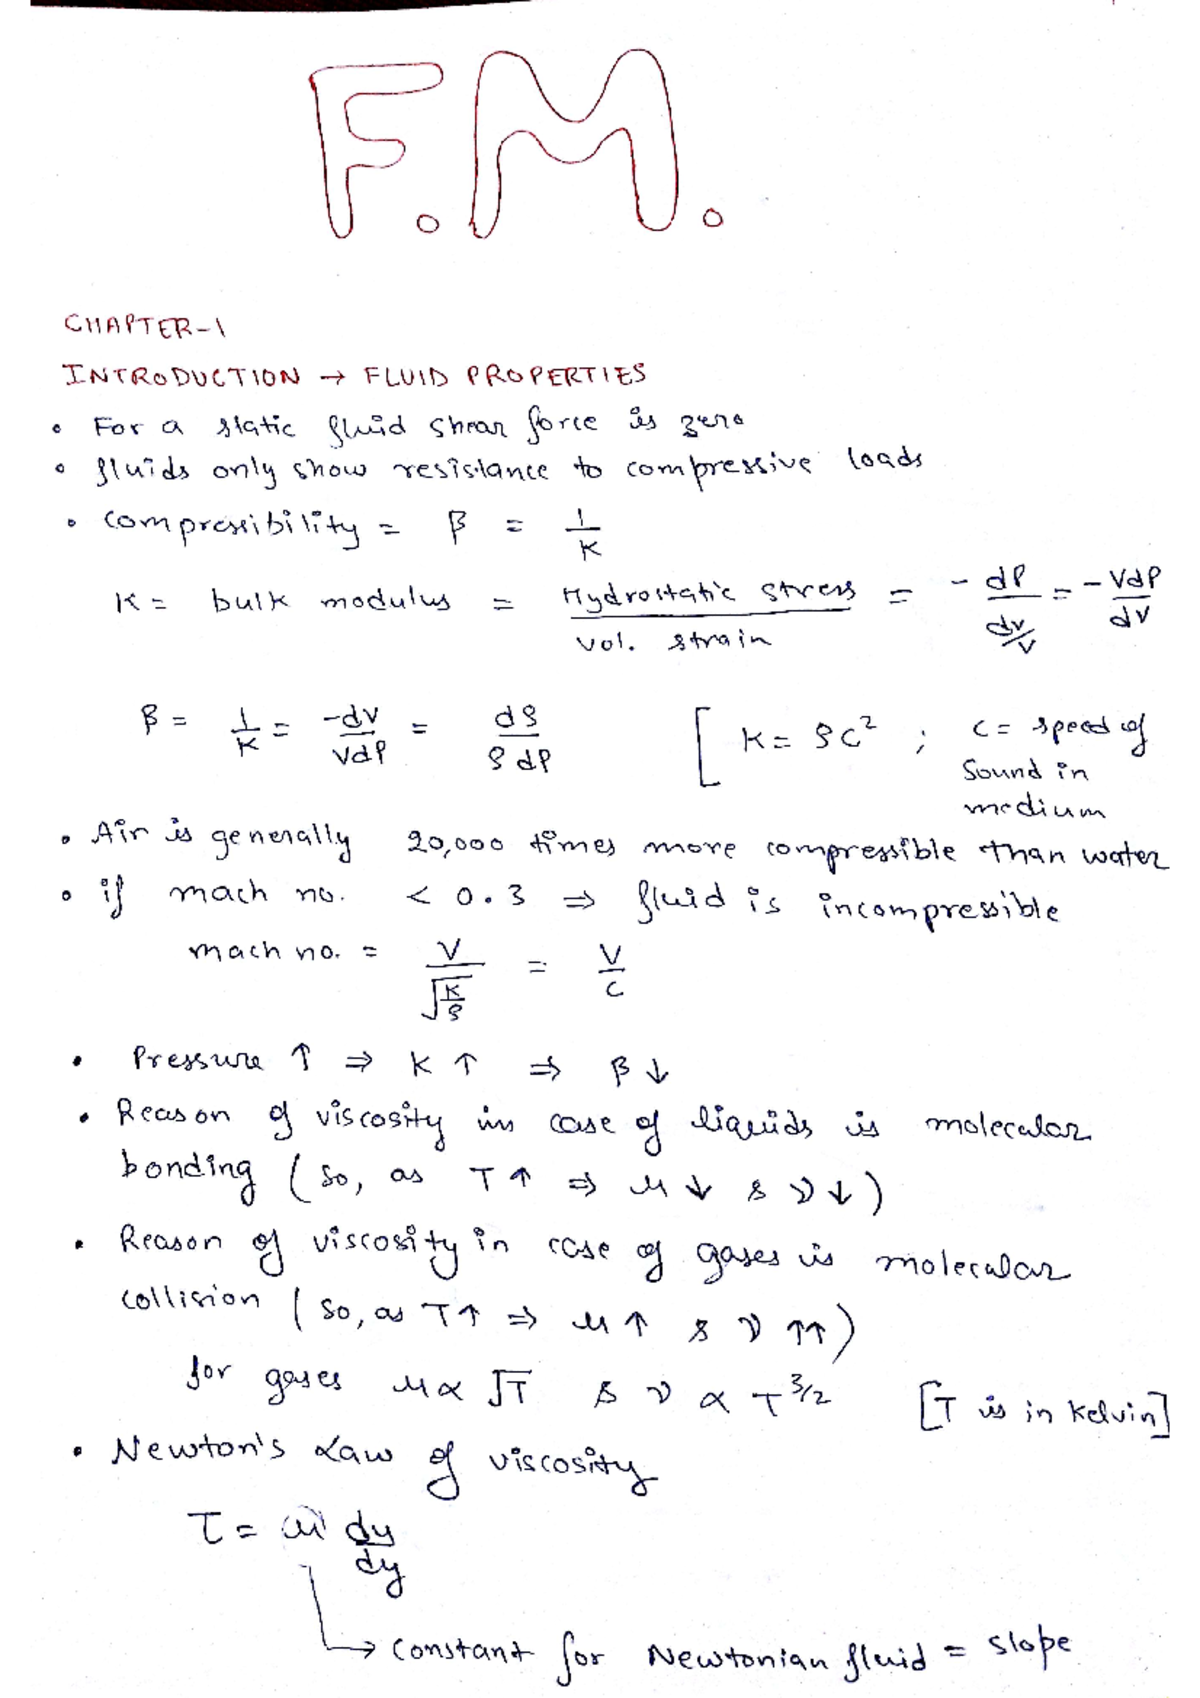 F.M.
CHAPTER-1
INTRODUCTION → FLUID PROPERTIES
• For a static fluid shear force is zero
• fluids only show resistance to compressive loads
• compressibility = β = 1/K
K = bulk modulus = Hydrostatic stress / vol. strain = - dP / (dv/v) = - VdP / dV
β = 1/K = -dV / VdP = dρ / ρ dP [ K = ρc² ; c = speed of
sound in
medium
• Air is generally 20,000 times more compressible than water
• if mach no. < 0.3 ⇒ fluid is incompressible
mach no. = V / √(K/ρ) = V / C
• Pressure ↑ ⇒ K ↑ ⇒ β ↓
• Reason of viscosity in case of liquids is molecular
bonding ( so, as T ↑ ⇒ μ ↓ & ν ↓ )
• Reason of viscosity in case of gases is molecular
collision ( so, as T ↑ ⇒ μ ↑ & ν ↑↑ )
for gases μ ∝ √T & ν ∝ T^3/2 [T is in kelvin]
• Newton's Law of viscosity
τ = μ du / dy
→ constant for Newtonian fluid = slope